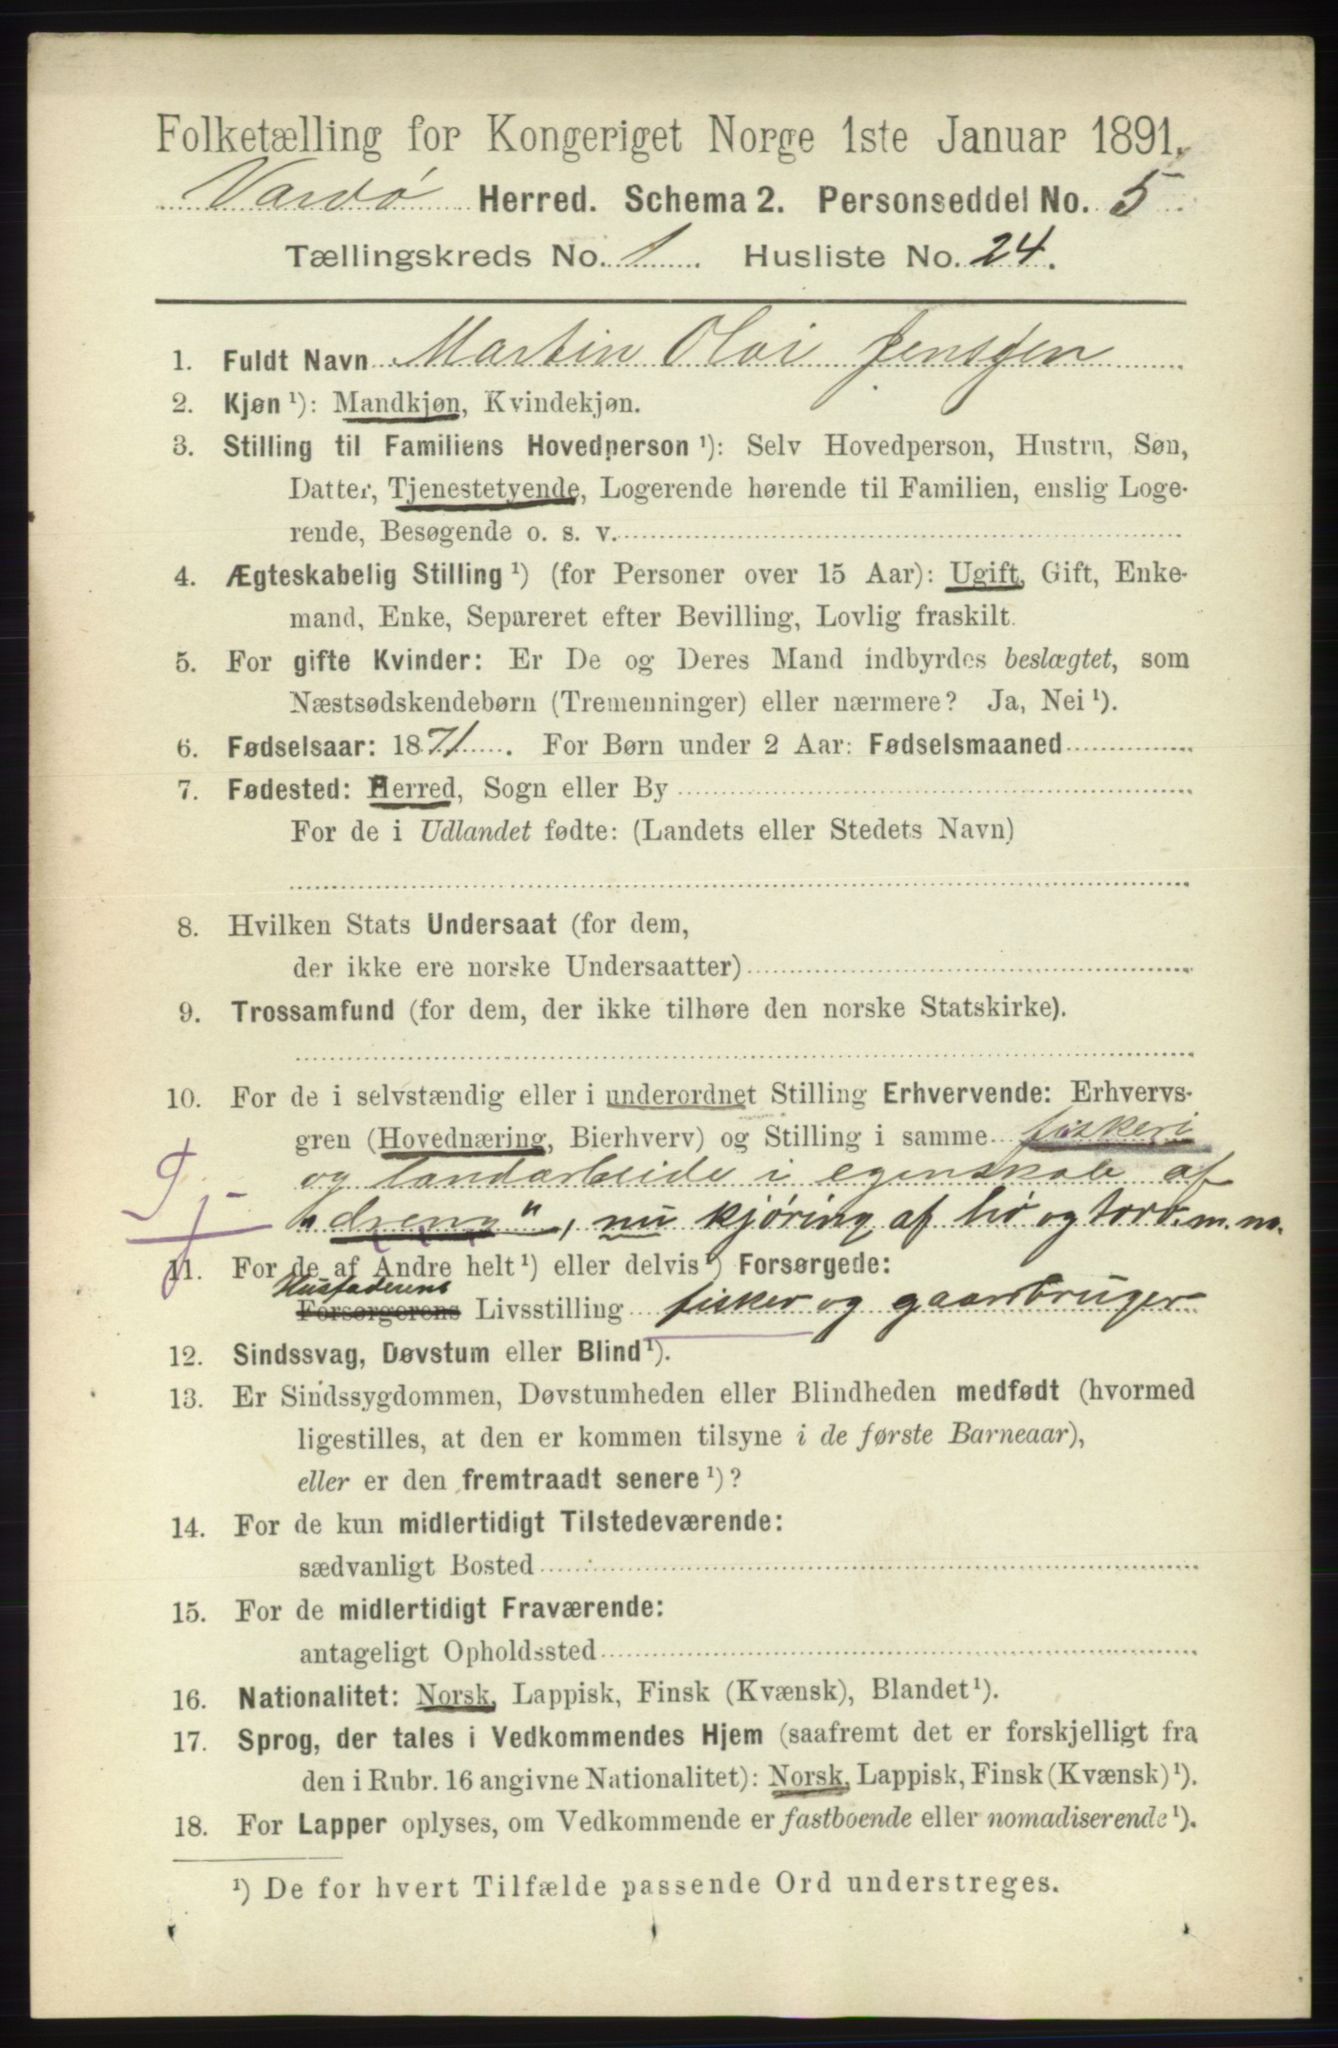 Folketælling for Kongeriget Norge 1ste Januar 1891.
Vardø Herred. Schema 2. Personseddel No. 5
Tællingskreds No. 1 Husliste No. 24.
1. Fuldt Navn Martin Olai Jenssen
2. Kjøn ¹): Mandkjøn, Kvindekjøn.
3. Stilling til Familiens Hovedperson ¹): Selv Hovedperson, Hustru, Søn,
Datter, Tjenestetyende, Logerende hørende til Familien, enslig Loge-
rende, Besøgende o. s. v.
4. Ægteskabelig Stilling ¹) (for Personer over 15 Aar): Ugift, Gift, Enke-
mand, Enke, Separeret efter Bevilling, Lovlig fraskilt.
5. For gifte Kvinder: Er De og Deres Mand indbyrdes beslægtet, som
Næstsødskendebørn (Tremenninger) eller nærmere? Ja, Nei ¹).
6. Fødselsaar: 1871. For Børn under 2 Aar: Fødselsmaaned
7. Fødested: Herred, Sogn eller By
For de i Udlandet fødte: (Landets eller Stedets Navn)
8. Hvilken Stats Undersaat (for dem,
der ikke ere norske Undersaatter)
9. Trossamfund (for dem, der ikke tilhøre den norske Statskirke).
10. For de i selvstændig eller i underordnet Stilling Erhvervende: Erhvervs-
gren (Hovednæring, Bierhverv) og Stilling i samme fiskeri
og landarbeide i egenskab af
"dreng", nu kjøring af hø og torv. m. m.
11. For de af Andre helt ¹) eller delvis ¹) Forsørgede:
Husfaderens
Forsørgerens Livsstilling fisker og gaardbruger
12. Sindssvag, Døvstum eller Blind ¹).
13. Er Sindssygdommen, Døvstumheden eller Blindheden medfødt (hvormed
ligestilles, at den er kommen tilsyne i de første Barneaar),
eller er den fremtraadt senere ¹)?
14. For de kun midlertidigt Tilstedeværende:
sædvanligt Bosted
15. For de midlertidigt Fraværende:
antageligt Opholdssted
16. Nationalitet: Norsk, Lappisk, Finsk (Kvænsk), Blandet ¹).
17. Sprog, der tales i Vedkommendes Hjem (saafremt det er forskjelligt fra
den i Rubr. 16 angivne Nationalitet): Norsk, Lappisk, Finsk (Kvænsk) ¹).
18. For Lapper oplyses, om Vedkommende er fastboende eller nomadiserende ¹).
¹) De for hvert Tilfælde passende Ord understreges.